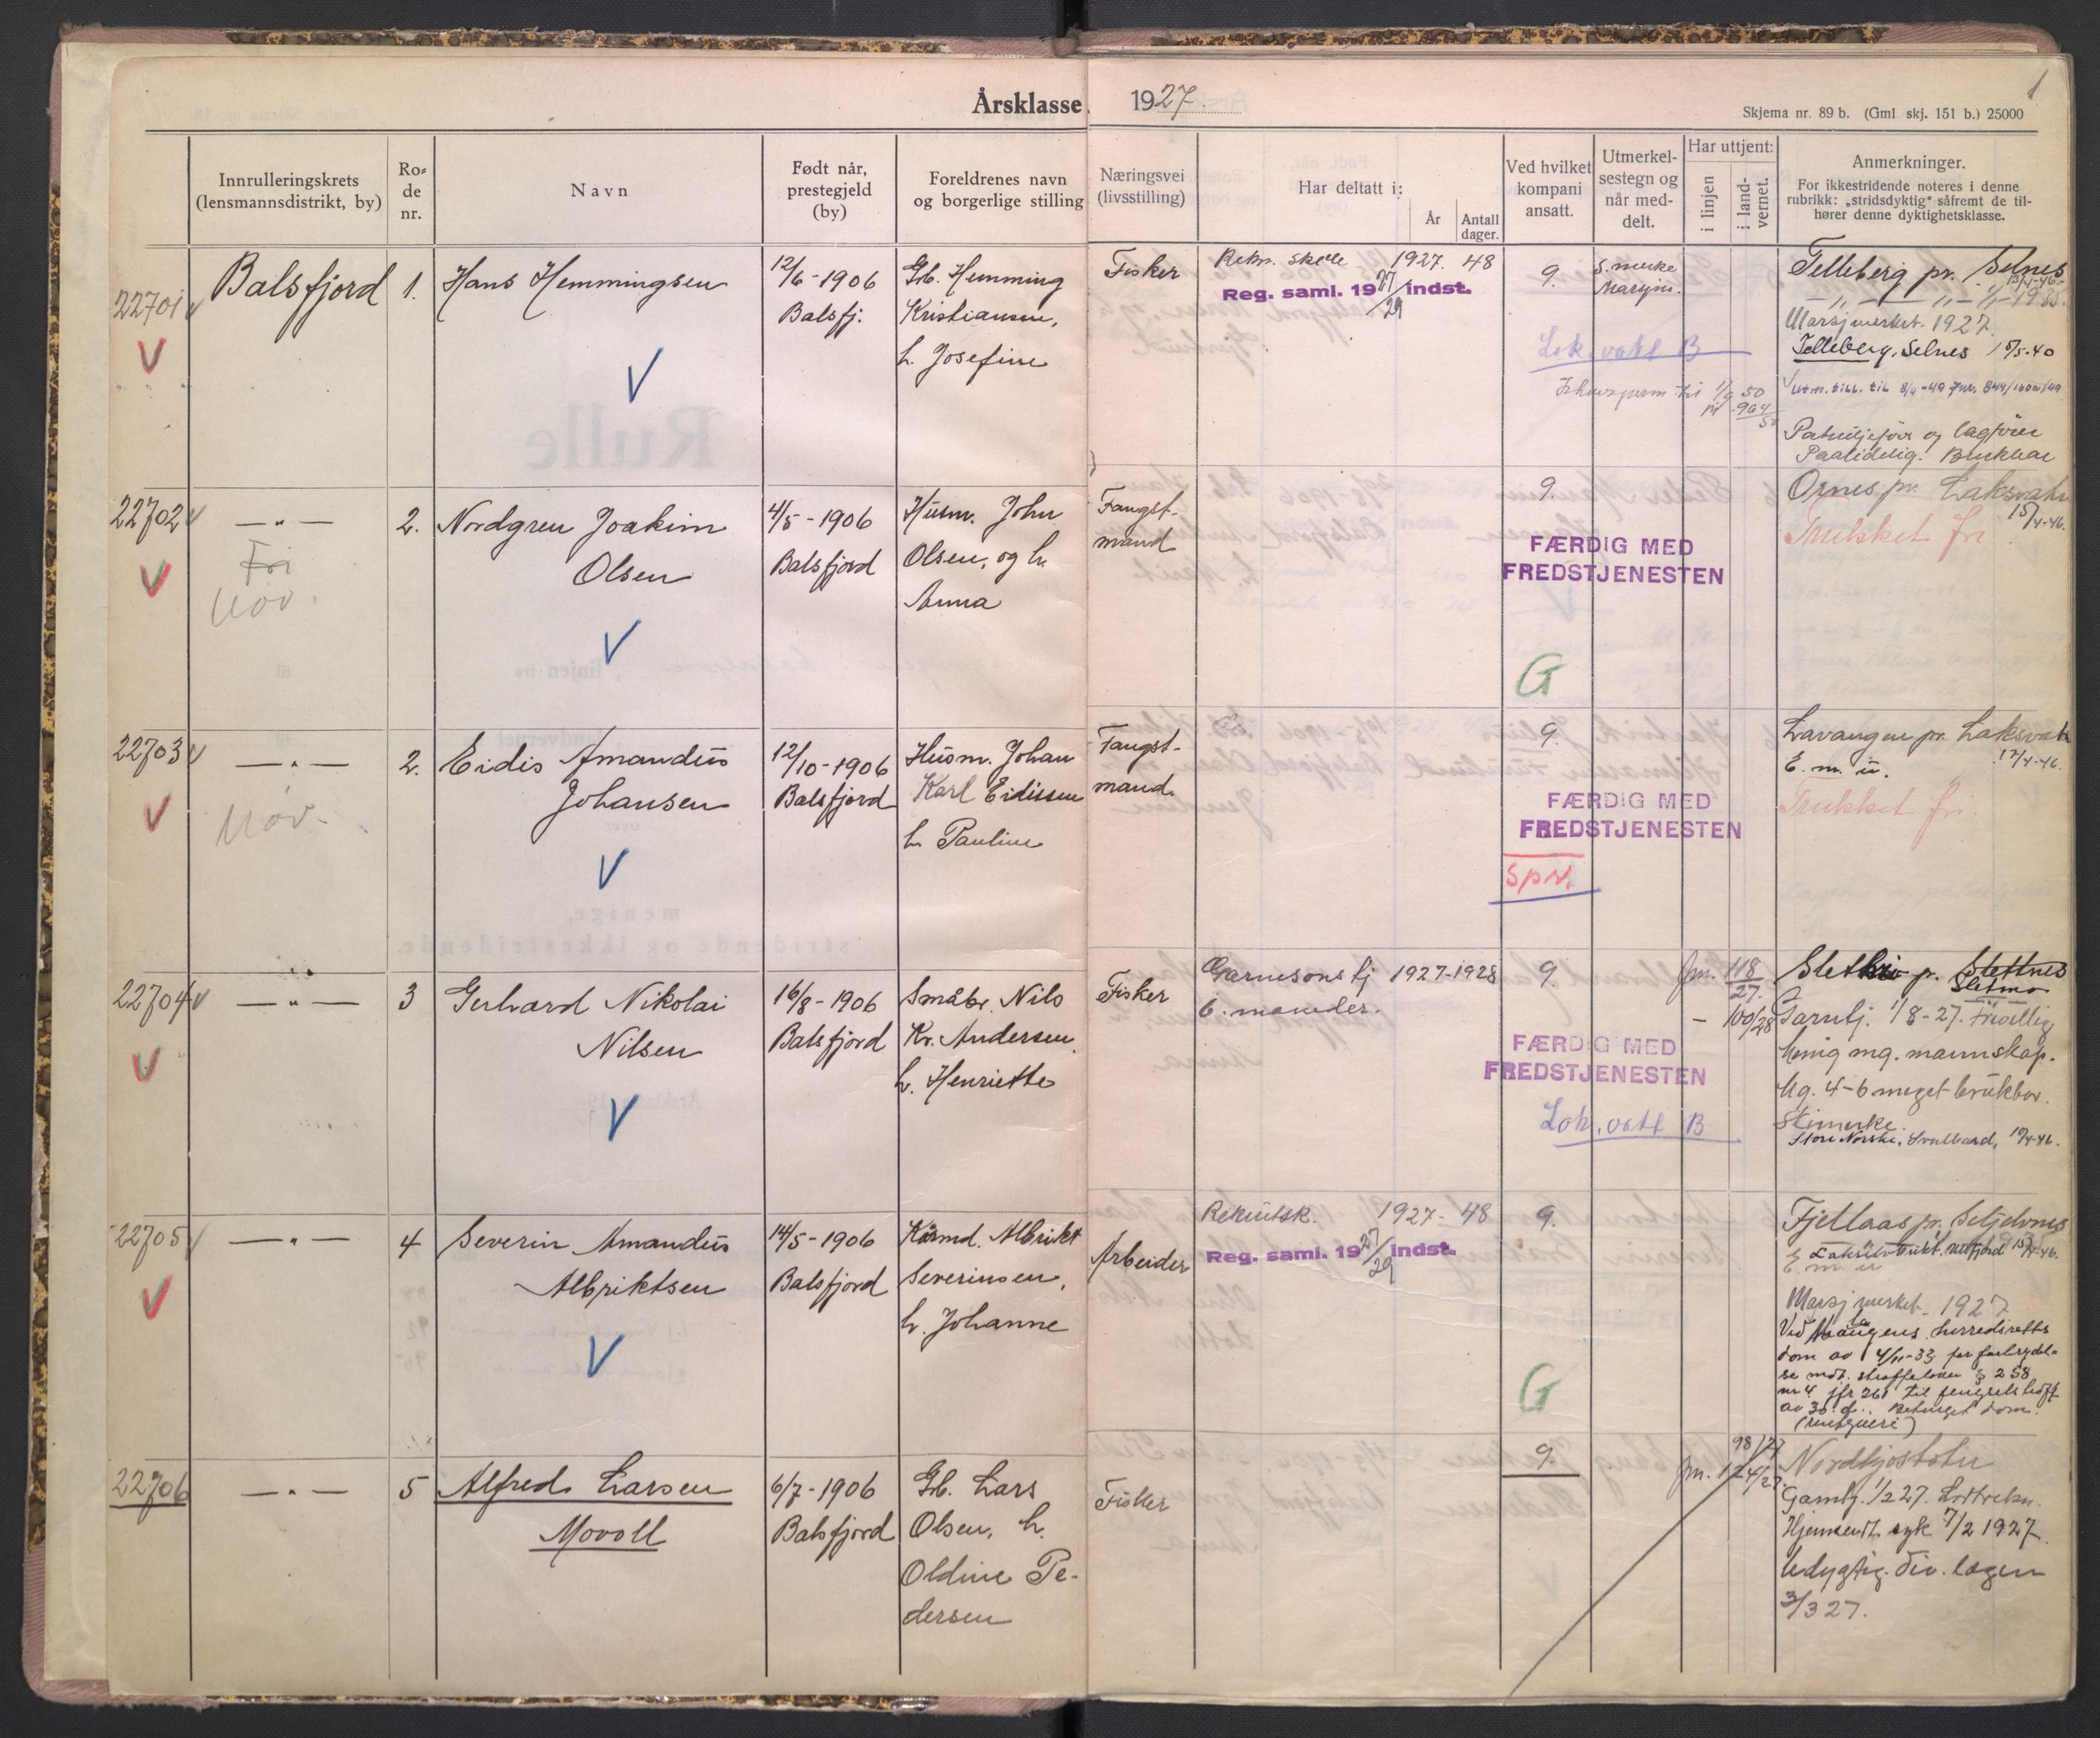 Årsklasse 1927.
1
Skjema nr. 89 b. (Gml. skj. 151 b.) 25000
Innrulleringskrets
(lensmannsdistrikt, by)
Ro-
de
nr.
Navn
Født når,
prestegjeld
(by)
Foreldrenes navn
og borgerlige stilling
Næringsvei
(livsstilling)
Har deltatt i:
År
Antall
dager.
Ved hvilket
kompani
ansatt.
Utmerkel-
sestegn og
når med-
delt.
Har uttjent:
i linjen
i land-
vernet.
Anmerkninger.
For ikkestridende noteres i denne
rubrikk: „stridsdyktig" såfremt de til-
hører denne dyktighetsklasse.
22701 V
V
Balsfjord
1.
Hans Hemmingsen
V
12/6-1906
Balsfj.
Gb. Hemming
Kristiansen,
h. Josefine
Fisker
Rekr. skole 1927. 48
Reg. saml. 1927/29 indst.
9.
S. merke
Lok. vakt B
Telleberg pr. Selnes
15/4-46.
Marsjmerket 1927.
Telleberg, Selnes
Patruljefører og lagfører
Paalidelig. Brukbar
22702 V
V
— " —
Fri
Mov.
2.
Nordgren Joakim
Olsen
V
4/5-1906
Balsfjord
Husm. John
Olsen, og h.
Anna
Fangst-
mand
9.
FÆRDIG MED
FREDSTJENESTEN
G
Ornes pr. Laksvatn
15/4-46.
Trukket fri
22703 V
V
— " —
Mov.
2.
Eidis Amandus
Johansen
V
12/10-1906
Balsfjord
Husm. Johan
Karl Eidissen
h. Pauline
Fangst-
mand
9.
FÆRDIG MED
FREDSTJENESTEN
Spv.
Lavangen pr. Laksvatn
E. m. u.
Trukket fri.
22704 V
V
— " —
3
Gerhard Nikolai
Nilsen
V
16/8-1906
Balsfjord
Småbr. Nils
Kr. Andersen
h. Henriette
Fisker
Garnisonstj 1927-1928
6. maneder.
9.
FÆRDIG MED
FREDSTJENESTEN
Lok. vakt B
Jm. 118/27.
- 100/28
pr. Slettnes
Sletmo
Garntj. 1/8-27. Frivillig
Menig mg. mannskap.
Mg. 4-6 meget brukbar.
Skimerke.
Store Norske, Svalbard,
22705 V
V
— " —
4
Severin Amandus
Albriktsen
V
14/5-1906
Balsfjord
Kårmd. Albrikt
Severinsen,
h. Johanne
Arbeider
Rekrutsk. 1927- 48
Reg. saml. 1927/29 indst.
9.
G
Fjellaas pr. Seljelvnes
E. m. u
Marsjmerket 1927
Ved Malangens herredsretts
dom av 4/11-33 for forbrydel-
se mot straffeloven § 258
nr 4 jfr 261 til fengselsheft
av 30 d.. Betinget dom.
22706
— " —
5
Alfred Larsen
Movoll
6/7-1906
Balsfjord
Gb. Lars
Olsen, h.
Oldine Pe-
dersen
Fisker
9.
98/27
Jm. 124/27
Nordkjosbotn
Garntj. 1/2 27. Lodtrekn.
Hjemsendt syk 7/2 1927.
Udygtig. div. lægen
3/3 27.